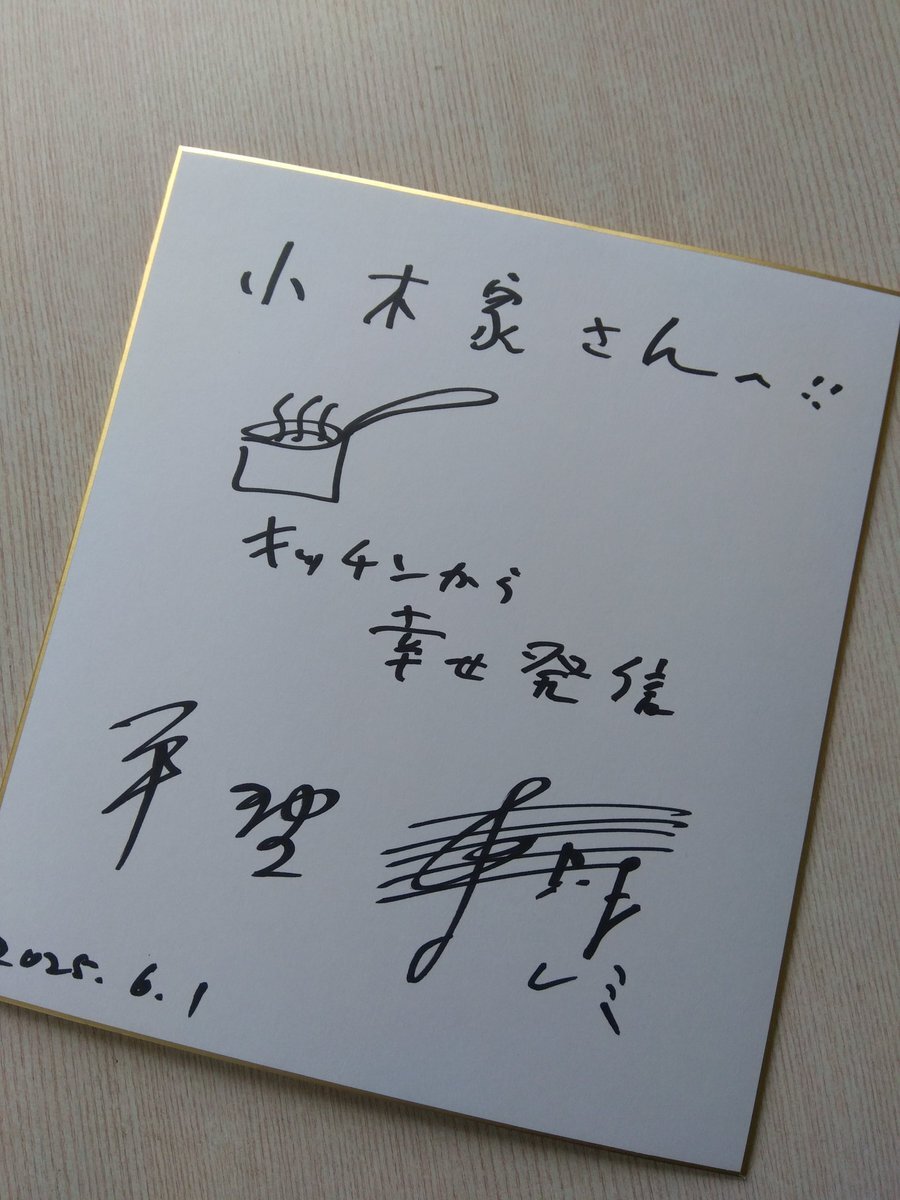 小木家さんへ!!
キッチンから
幸せ発信
平野
レミ
2025.6.1